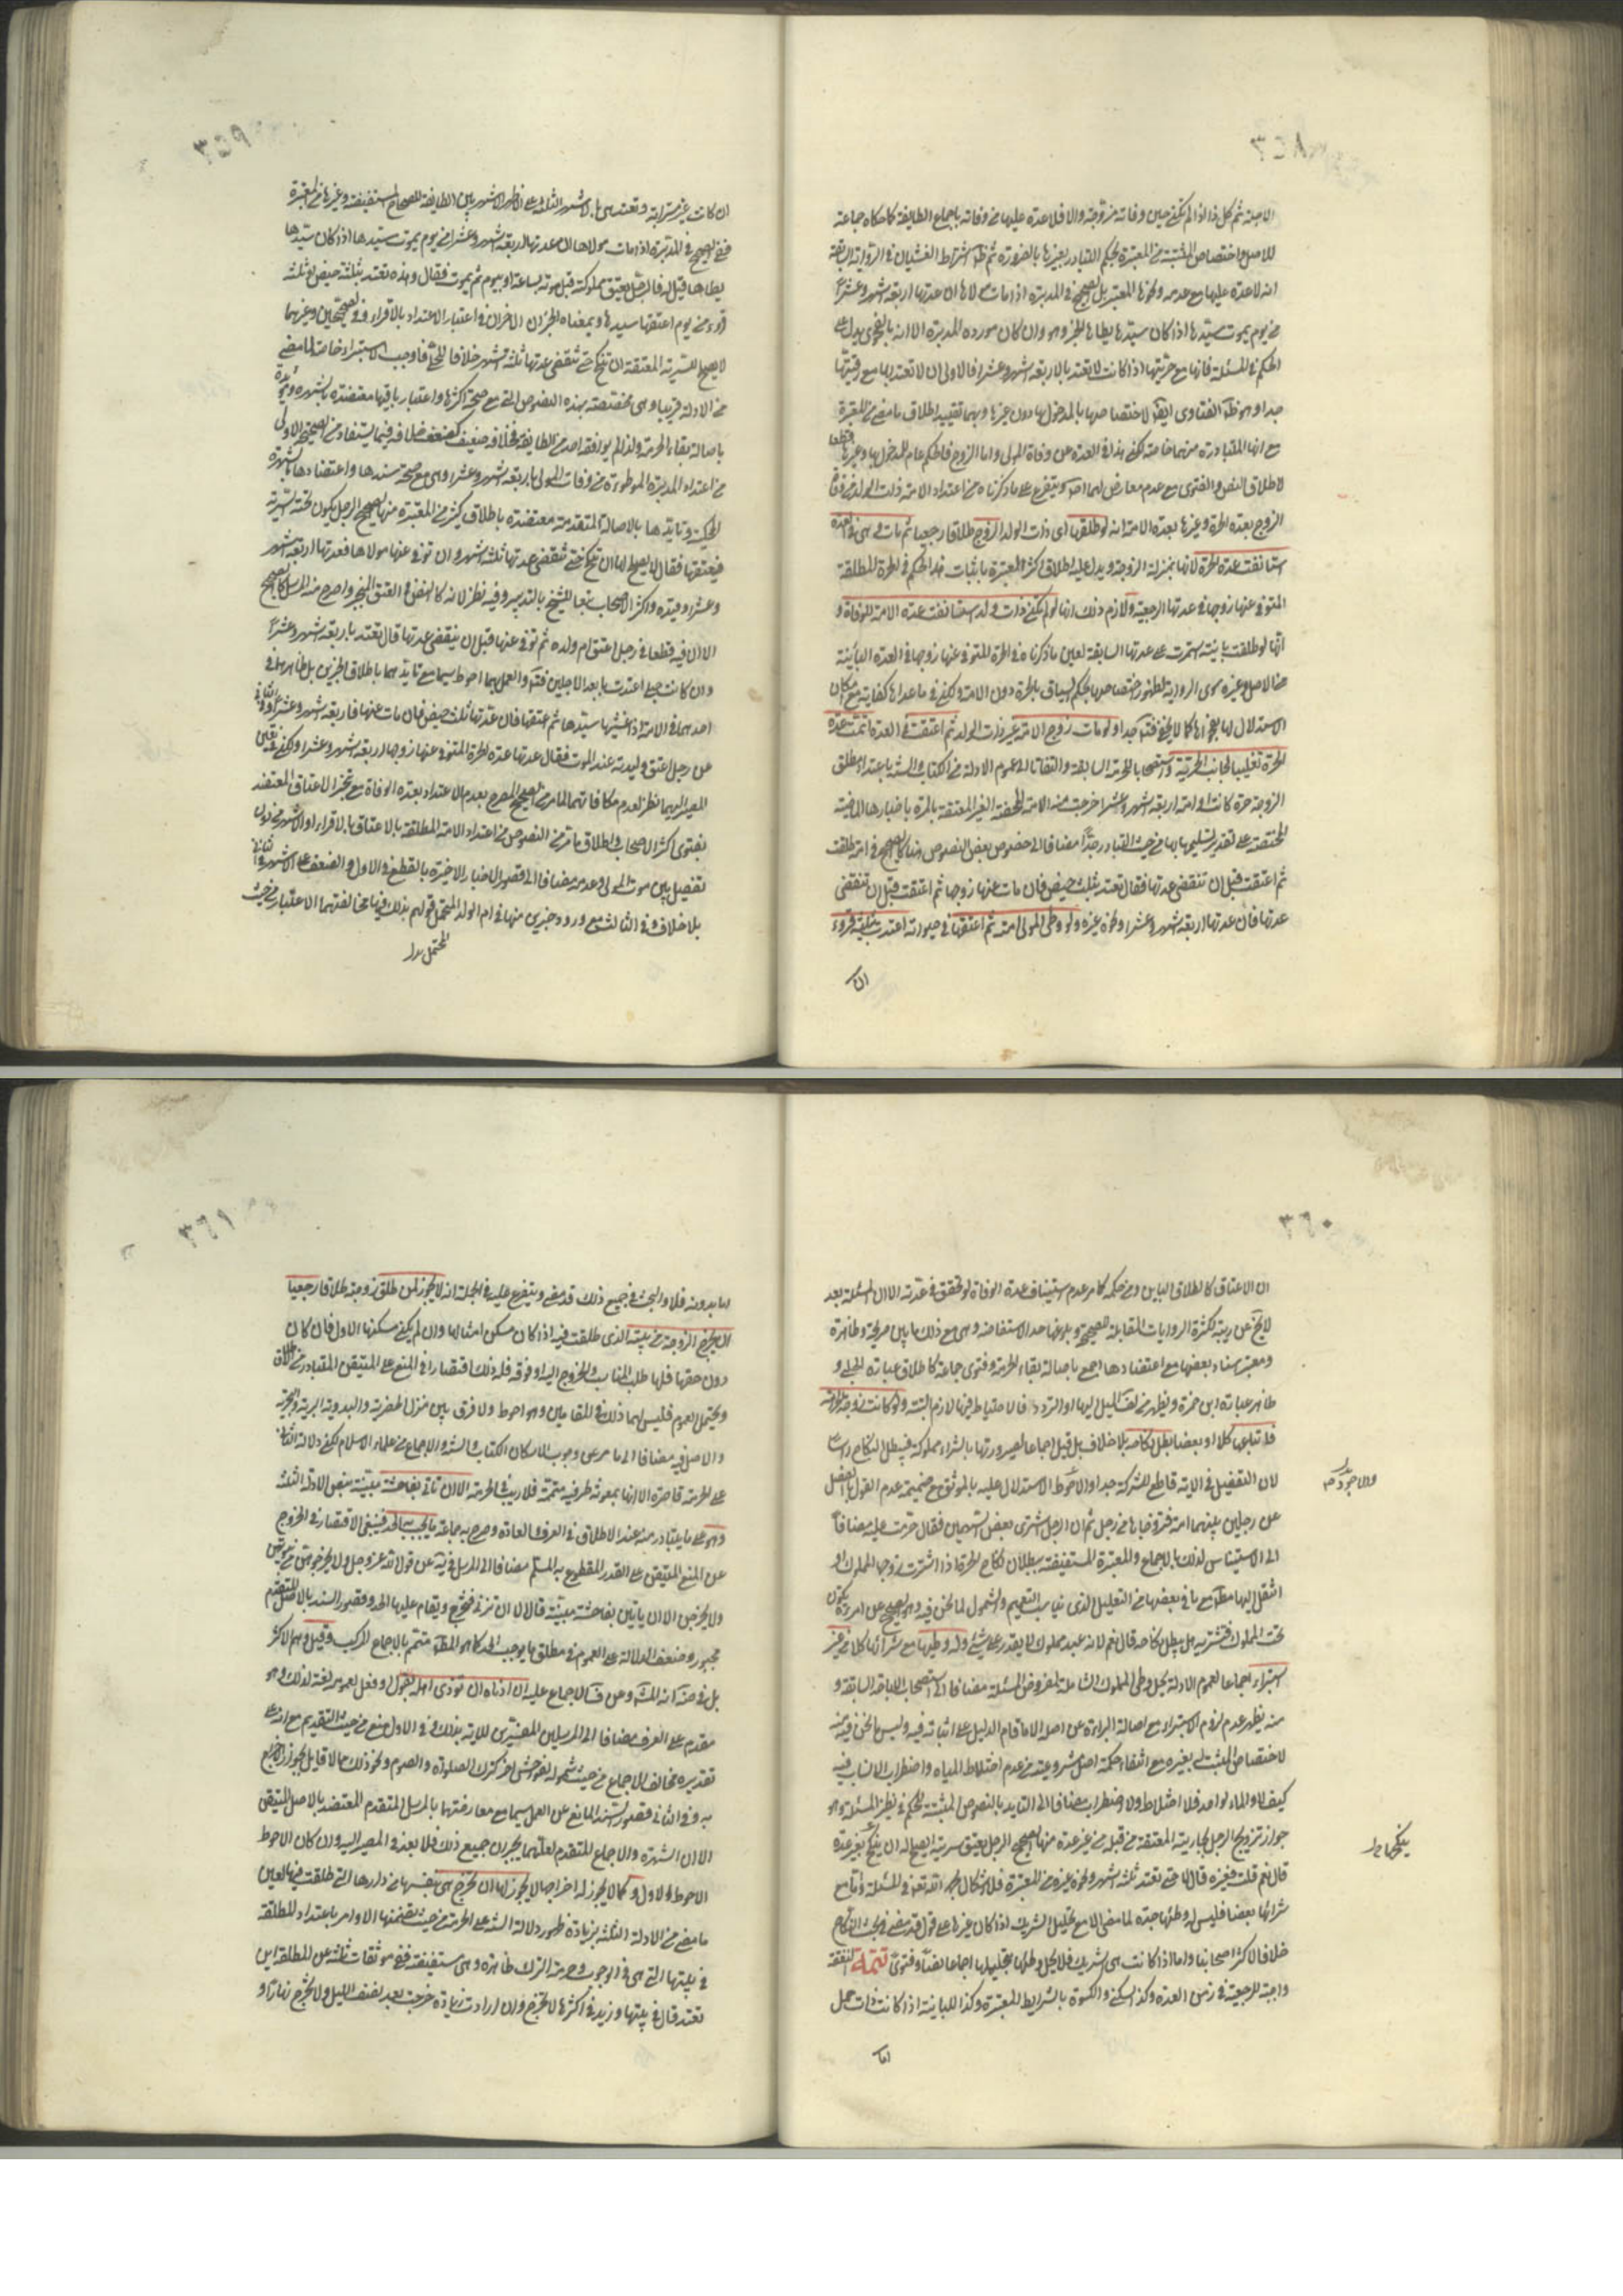 ٣٥٨
الا جبته ثم كل ذا اذا لم يكن حين وفاته مزوجة والا فلا عدة عليها من وفاته باجماع الطايفة كما حكاه جماعة
للاصل واختصاص المثبتة من المعتبرة بحكم التبادر بغيرها بالضرورة ثم ظ اشتراط الغشيان في الرواية السابقة
انه لا عدة عليها مع عدمه ونحوها المعتبر بل الصحيح في المدبرة اذا مات مولاها ان عدتها اربعة اشهر وعشرا
من يوم يموت سيدها اذا كان سيدها يطاها الخبر وهو وان كان مورده المدبرة الا انه بالفحوى يدل على
الحكم في المسئلة فانها مع حريتها اذا كانت لا تعتد بالاربعة اشهر وعشرا فالاولى ان لا تعتد بها مع رقيتها
جدا وهو ظ الفتاوى ايضا لاختصاصها بالمدخول بها دون غيرها وبهما تقييد اطلاق ما مضى من المعتبرة
مع انها المتبادرة منهما خاصة لكن هذا في العدة من وفاة المولى واما الزوج فالحكم عام للمدخول بها وغيرها قطعا
لاطلاق النص والفتوى مع عدم معارض لهما اصلا ويتفرع على ما ذكرناه من اعتداد الامة ذات الولد من وفاة
الزوج بعدة الحرة وغيرها بعدة الامة انه لو طلقها اى ذات الولد الزوج طلاقا رجعيا ثم مات وهى في العدة
استانفت عدة الحرة لانها بمنزلة الزوجة ويدل عليه اطلاق اكثر المعتبرة باثبات هذا الحكم في الحرة المطلقة
المتوفى عنها زوجها في عدتها الرجعية ولازم ذلك انها لو لم يكن ذات ولد استانفت عدة الامة للوفاة و
انها لو طلقت باينة استمرت على عدتها السابقة لعين ما ذكرناه في الحرة المتوفى عنها زوجها في العدة الباينة
من الاصل وغيره سوى الرواية لظهور اختصاصها بحكم السياق بالحرة دون الامة ولكن في ما عداها كفاية مع امكان
الاستدلال لها بفحواها كما لا يخفى فتدبر جيدا ولو مات زوج الامة غير ذات الولد ثم اعتقت في العدة اتمت عدة
الحرة تغليبا لجانب الحرية واستصحابا للحرمة السابقة والتفاتا الى عموم الادلة من الكتاب والسنة باعتداد مطلق
الزوجة حرة كانت او امة اربعة اشهر وعشرا خرجت منه الامة المحضة الغير المعتقة بالمرة باخبارها الماضية
المختصة على تقدير تسليمها بها من حيث التبادر جدا مضافا الى خصوص بعض النصوص هنا كالصحيح في امة طلقت
ثم اعتقت قبل ان تنقضى عدتها فقال تعتد بثلث حيض فان مات عنها زوجها ثم اعتقت قبل ان تنقضى
عدتها فان عدتها اربعة اشهر وعشرا ونحوه غيره ولو وطى المولى امته ثم اعتقها في حيوته اعتدت بثلثة قروء
ان
٣٥٩
ان كانت غير مسترابة وتعتد هي بالاشهر الثلثة على الاظهر الاشهر بين الطايفة للصحاح المستفيضة وغيرها من المعتبرة
ففي الصحيح في المدبرة اذا مات مولاها ان عدتها اربعة اشهر وعشرا من يوم يموت سيدها اذا كان سيدها
يطاها قيل له فالرجل يعتق مملوكته قبل موته بساعة او بيوم ثم يموت فقال وهذه تعتد بثلثة حيض او ثلثة
قروء من يوم اعتقها سيدها وبمعناه الخبران الاخران في اعتبار الاعتداد بالاقراء وفي الصحيحين وغيرهما
لا يصح للسرية المعتقة ان تنكح حتى تنقضى عدتها ثلثة اشهر خلافا للحلى فاوجب الاستبراء خاصة لما مضى
من الادلة قريبا وهي مخصصة بهذه النصوص التي مع صحة اكثرها واعتبار باقيها معتضدة بالشهرة ومؤيدة
باصالة بقاء الحرمة ولذا لم يوافقه احد من الطايفة فخلافه ضعيف كضعف خلافه فيما يستفاد من الصحيحة الاولى
من اعتداد المدبرة الموطوءة من وفات المولى باربعة اشهر وعشرا وهي مع صحة سندها واعتضادها بالشهرة
المحكية وتايدها بالاصالة المتقدمة معتضدة باطلاق كثير من المعتبرة منها الصحيح الرجل يكون تحته السرية
فيعتقها فقال لا يصلح لها ان تنكح حتى تنقضى عدتها ثلثة اشهر وان توفى عنها مولاها فعدتها اربعة اشهر
وعشرا وقيده واكثر الاصحاب تبعا للشيخ بالتدبير وفيه نظر لانه كالنص في العتق المنجز واصرح منه المرسل كالصحيح
الا ان فيه قطعا في رجل اعتق ام ولده ثم توفى عنها قبل ان ينقضى عدتها قال تعتد باربعة اشهر وعشرا
وان كانت حبلى اعتدت بابعد الاجلين فتم والعمل بهما احوط سيما مع تايدهما باطلاق الخبرين بل ظاهرهما في
احدهما في الامة اذا غشيها سيدها ثم اعتقها فان عدتها ثلث حيض فان مات عنها فاربعة اشهر وعشرا وفي الثاني
عن رجل اعتق وليدته عند الموت فقال عدتها عدة الحرة المتوفى عنها زوجها اربعة اشهر وعشرا ولكن في تعين
المصير اليهما نظر لعدم مكافاتهما لما مر من الصحيح المصرح بعدم الاعتداد بعدة الوفاة مع تنجز الاعتاق المعتضد
بفتوى اكثر الاصحاب واطلاق ما مر من النصوص من اعتداد الامة المطلقة بالاعتاق بالاقراء او الاشهر من دون
تفصيل بين موت المولى وعدمه مضافا الى قصور الاخبار الاخيرة بالقطع في الاول والضعف على الاشهر في الثاني
بلا خلاف وفي الثالث مع ورود خبرين منها في ام الولد المحتمل قولهم بذلك فيها مخالفتهما الاعتبار من حيث
المحتمل بدل
٣٦٠
ان الاعتاق كالطلاق البائن ومن حكمه كما مر عدم استيناف عدة الوفاة لو تحقق في عدته الا ان المسئلة بعد
لا يخ عن ريبة لكثرة الروايات المقابلة للصحيح وبلوغها حد الاستفاضة وهي مع ذلك ما بين صريحة وظاهرة
ومعتبر سناد بعضها مع اعتضادها اجمع باصالة بقاء الحرمة وفتوى جماعة كاطلاق عبارة الحلى و
ظاهر عبارة ابن حمزة ويظهر من لف الميل اليها او التردد فالاحتياط فيها لازم البتة ولو كانت زوجة الحر امة
فابتاعها كلا او بعضا بطل نكاحه بلا خلاف بل قيل اجماعا لصيرورتها بالشراء مملوكة فيبطل النكاح راسا
لان التفصيل في الاية قاطع للشركة جدا والاحوط الاستدلال عليه بالموثق مع ضميمة عدم القول بالفصل
عن رجلين بينهما امة فزوجاها من رجل ثم ان الرجل اشترى بعض السهمين فقال حرمت عليه مضافا
الى الاستيناس لذلك بالاجماع والمعتبرة المستفيضة ببطلان نكاح الحرة اذا اشترت زوجها المملوك او
انتقل اليها مطلقا مع ما في بعضها من التعليل الذي هو في باب التعميم والشمول لما نحن فيه وهو الصحيح عن امراة يكون
تحت المملوك فتشتريه هل يبطل نكاحه قال نعم لانه عبد مملوك لا يقدر على شئ وله وطيها مع شرائها كلا من غير
استبراء اجماعا لعموم الادلة بحل وطى المملوك الشاملة لمفروض المسئلة مضافا الى استصحاب الاباحة السابقة و
منه يظهر عدم لزوم الاستبراء مع اصالة البراءة عن اصله الا ما قام الدليل على اثباته فيه وليس ما نحن فيه منه
لاختصاص المثبت له بغيره مع انتفاء حكمة اصل مشروعيته من عدم اختلاط المياه واضطراب الانساب فيه
كيف لا والماء لواحد فلا اختلاط ولا اضطراب مضافا الى التايد بالنصوص المثبتة للحكم في نظير المسئلة وهو
جواز تزويج الرجل لجاريته المعتقة من قبله من غير عدة منها الصحيح الرجل يعتق سريته ايصلح له ان ينكح بغير عدة
قال نعم قلت فغيره قال لا حتى تعتد ثلثة اشهر ونحوه غيره من المعتبرة فلا اشكال بحمد الله تعالى في المسئلة واما مع
شرائها بعضا فليس له وطئها جدة لما مضى الا مع تحليل الشريك اذا كان غيرها على قول قد مضى في بحث النكاح
خلافا لاكثر اصحابنا واما اذا كانت هي الشريك فلا يحل وطئها بتحليلها اجماعا نصا وفتوى تتمة النفقة
واجبة للرجعية في زمن العدة وكذا السكنى والكسوة بالشرايط المعتبرة وكذا للباينة اذا كانت ذات حمل
والاجود بدل
ينكحها بدل
اما
٣٦١
اما بدونه فلا والبحث في جميع ذلك قد مضى ويتفرع عليه في الجملة انه لا يجوز لمن طلق زوجته طلاقا رجعيا
ان يخرج الزوجة من بيته الذي طلقت فيه اذا كان مسكن امثالها وان لم يكن مسكنها الاول فان كان
دون حقها فلها طلب المناسب والخروج اليه او فوقه فله ذلك اقتصارا في المنع على المتيقن المتبادر من الاطلاق
ويحتمل العموم فليس لهما ذلك في المقامين وهو احوط ولا فرق بين منزل الحضرية والبدوية البرية والبحرية
والاصل فيه مضافا الى ما مر من وجوب الاسكان الكتاب والسنة والاجماع من علماء الاسلام لكن دلالة الثاني
على الحرمة قاصرة الا انها بمعونة طرفيه متممة فلا ريب في الحرمة الا ان تاتى بفاحشة مبينة بنص الادلة الثلثة
وهو على ما يتبادر منه عند الاطلاق في العرف والعادة وصرح به جماعة ما يجب به الحد فينبغي الاقتصار في الخروج
عن المنع المتيقن على القدر المقطوع به المسلم مضافا الى المرسل في يه عن قول الله عز وجل ولا تخرجوهن من بيوتهن
ولا يخرجن الا ان ياتين بفاحشة مبينة قال الا ان تزنى فتخرج ويقام عليها الحد وقصور السند بالاصل المتقدم
مجبور وضعف الدلالة على العموم في مطلق ما يوجب الحد كما هو المط متمم بالاجماع المركب وقيل وهم الاكثر
بل في ضه انه المش وعن ف الاجماع عليه ان ادناه ان تؤذى اهله بقول او فعل لعمومه لغة لذلك وهو
مقدم على العرف مضافا الى المرسلين المفسرين للاية بذلك وفي الاول منع من حيث التقديم مع انه على
تقديره مخالف للاجماع من حيث شموله لفواحش اخر كترك الصلوة والصوم ونحو ذلك مما لا قايل بجواز الاخراج
به وفي الثاني قصور السند المانع عن العمل سيما مع معارضتها بالمرسل المتقدم المعتضد بالاصل المتيقن
الا ان الشهرة والاجماع المتقدم لعلهما يجبران جميع ذلك فلا بعد في المصير اليه وان كان الاحوط
الاحوط الاول وكما لا يجوز له اخراجها لا يجوز لها ان تخرج هي بنفسها من دارها التي طلقت فيها لعين
ما مضى من الادلة الثلثة بزيادة ظهور دلالة السنة على الحرمة من حيث تضمنها الاوامر باعتداد المطلقة
في بيتها التي هي في الوجوب وحرمة الترك ظاهرة وهي مستفيضة ففي موثقات ثلثة عن المطلقة اين
تعتد قال في بيتها وزيد في اكثرها لا تخرج وان ارادت زيارة خرجت بعد نصف الليل ولا تخرج نهارا و